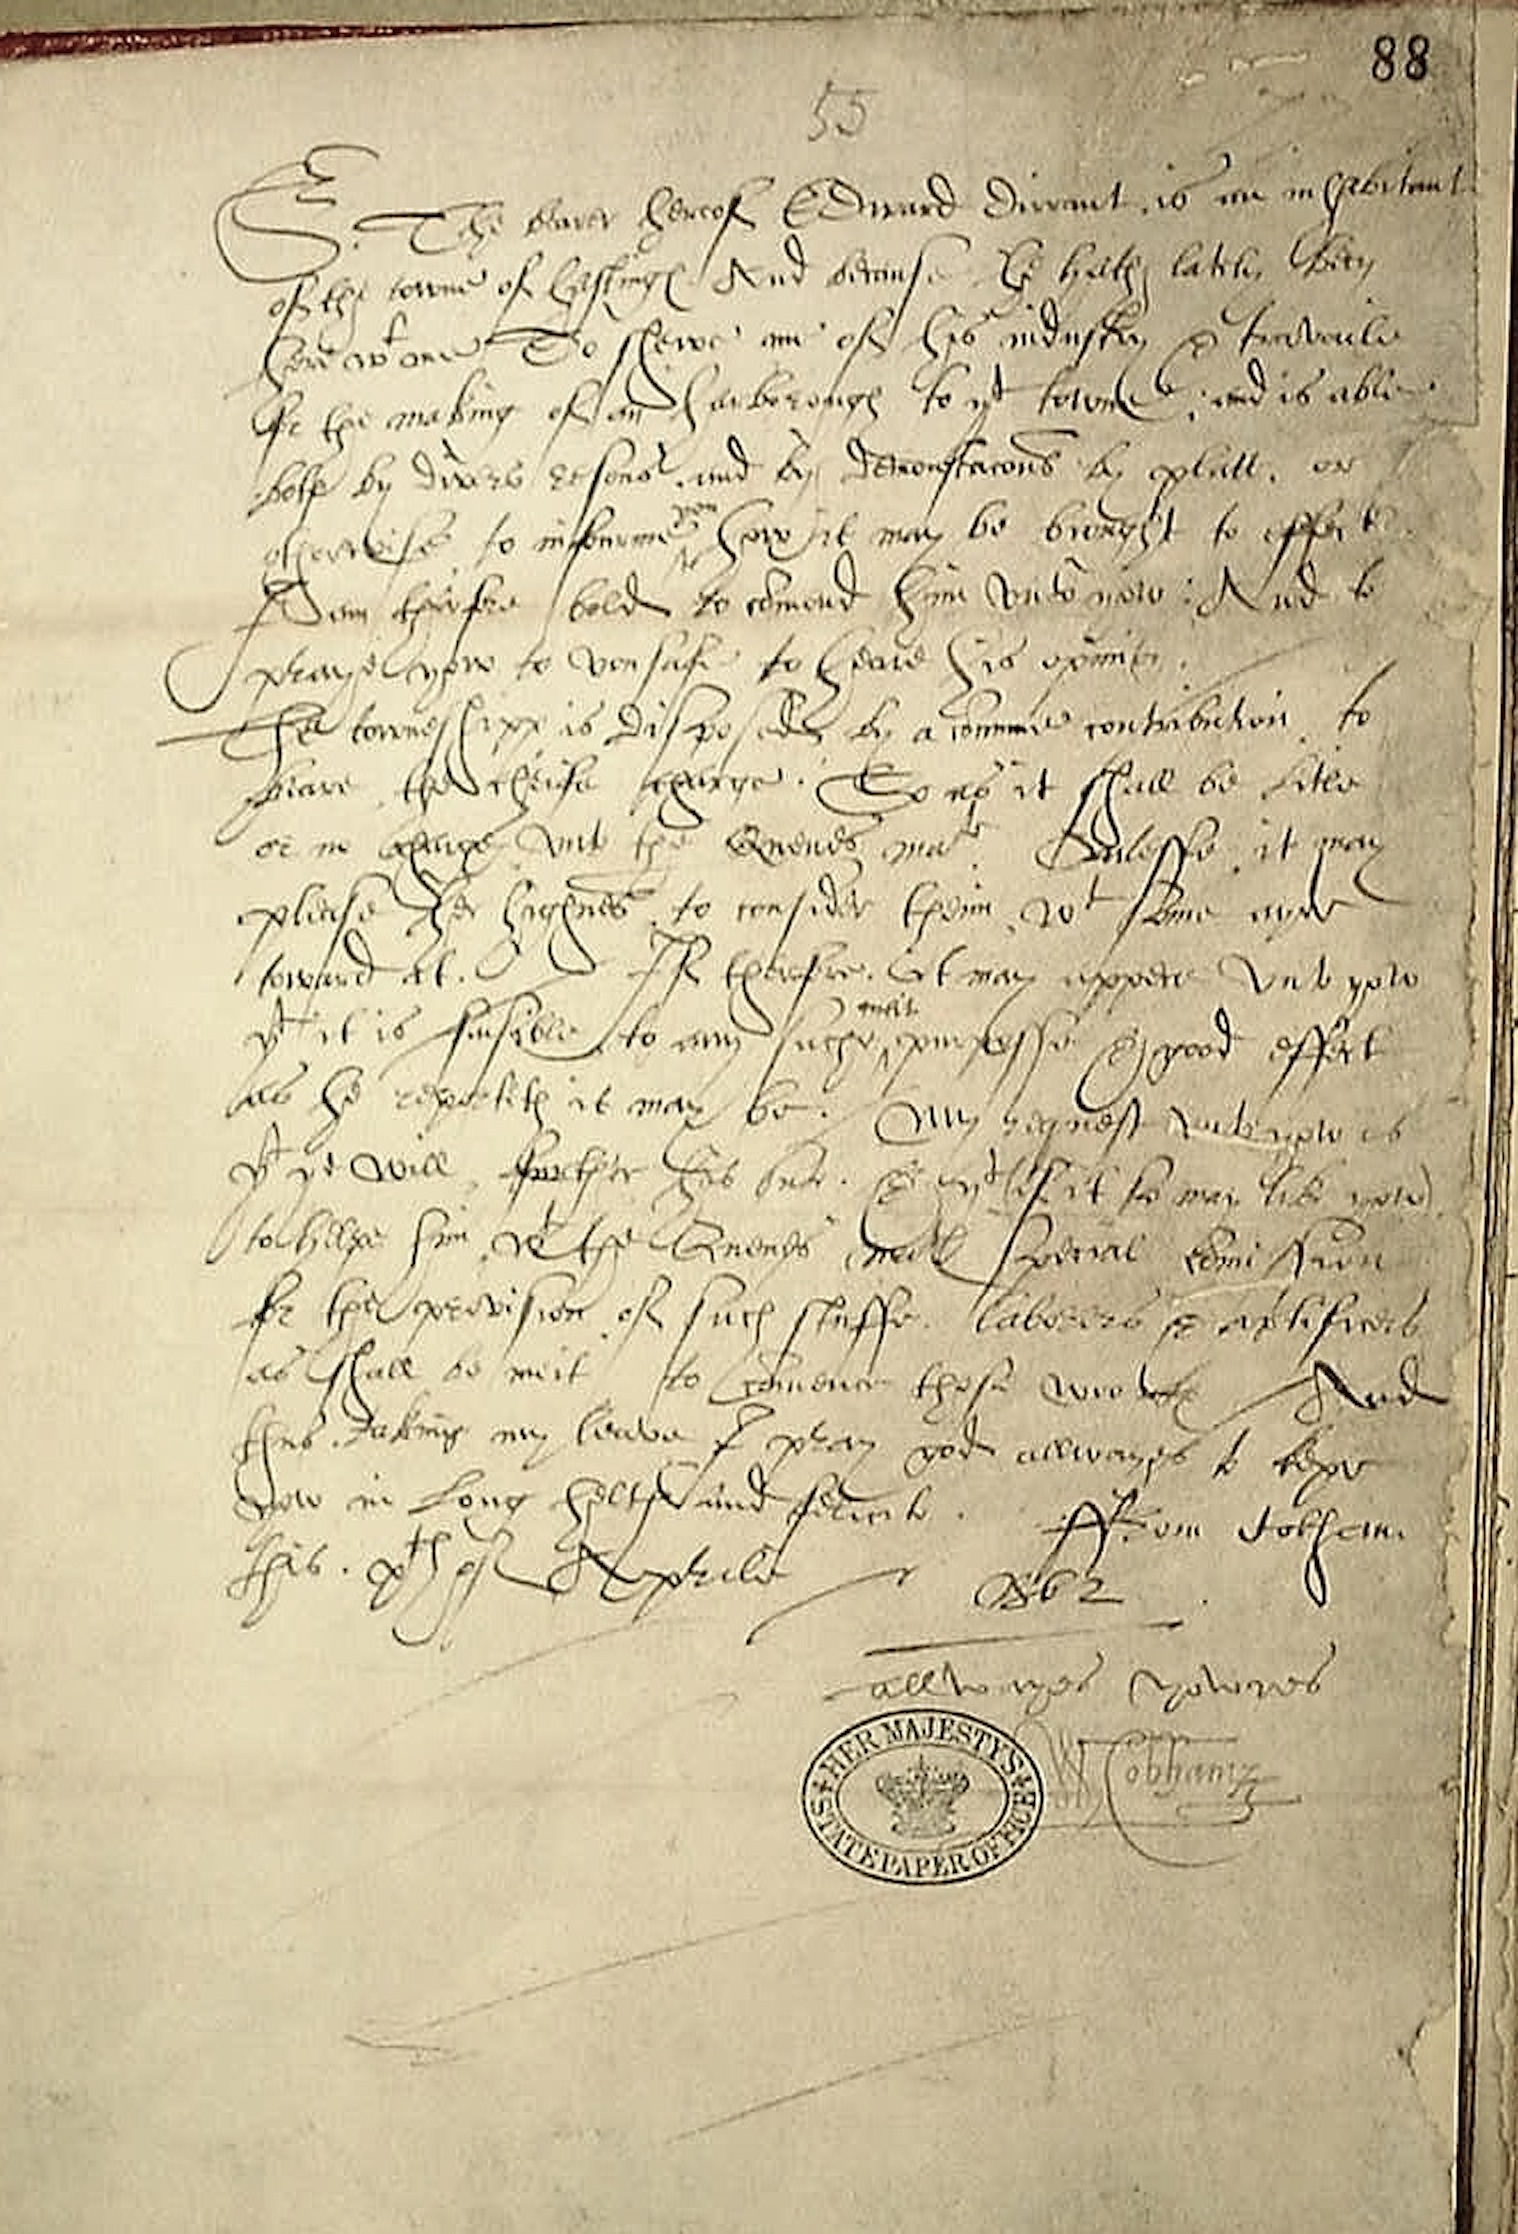 88
55
S. The bearer hereof Edward Durrant, is an inhabitant
of the towne of hastingℓ And because he hath lately ben
here wt me To shewe me of his industry & travaile
for the making of an harborough to yt towne, and is able
bothe by divers resons and by demonstracons by platt, or
otherwise to infourme you how it may be brought to effect
I am therfore bold to comend him unto yow: And to
praye yow to vousafe to heare his opinion.
The towneshipp is disposed by a comune contribution to
beare the chiefe charge. So as it shall be litle
or no charge unto the Quenes matie. Unlesse it may
please her highnes to consider theim wt some ayde
toward it. If therfore it may appere unto yow
yt it is faisible to any suche meit purposse & good effect
as he reportith it may be. My request unto yow is
yt ye will further his sute. & yt (if it so may like yow)
to helpe him wt the Quenes speciall comission
for the provision of such stuffe laborers & artificers
as shall be meit to comence these workℓ And
thus taking my leave I pray god allwayes to kepe
yow in Long helth and felicite. ffrom Cobham
this . xth of Aprile 1562
allwayes yowres
W Cobham
HER MAJESTY'S STATE PAPER OFFICE